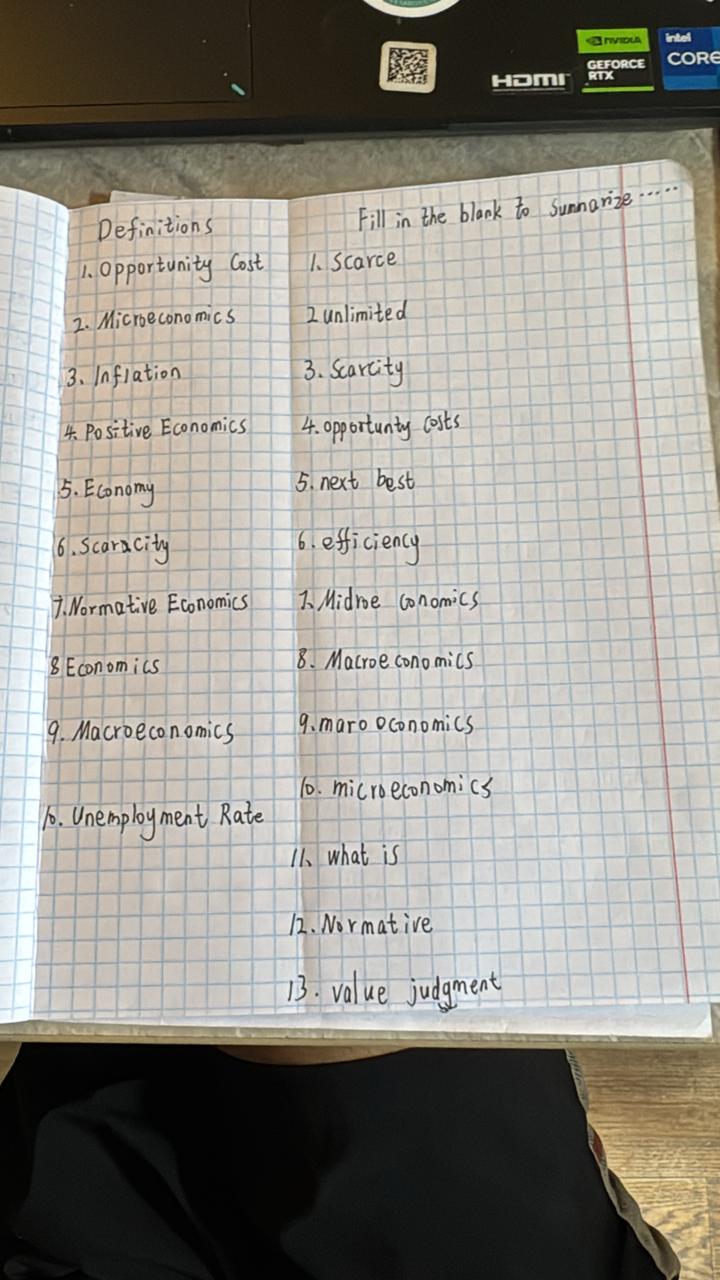 HDMI
NVIDIA
GEFORCE
RTX
intel
CORE
Definitions
1. Opportunity Cost
2. Microeconomics
3. Inflation
4. Positive Economics
5. Economy
6. Scaracity
7. Normative Economics
8 Economics
9. Macroeconomics
10. Unemployment Rate
Fill in the blank to Sumnarize .....
1. Scarce
2 unlimited
3. Scarcity
4. opportunty costs
5. next best
6. efficiency
7. Midroe conomics
8. Macroeconomics
9. maro oconomics
10. microeconomics
11. what is
12. Normative
13. value judgment